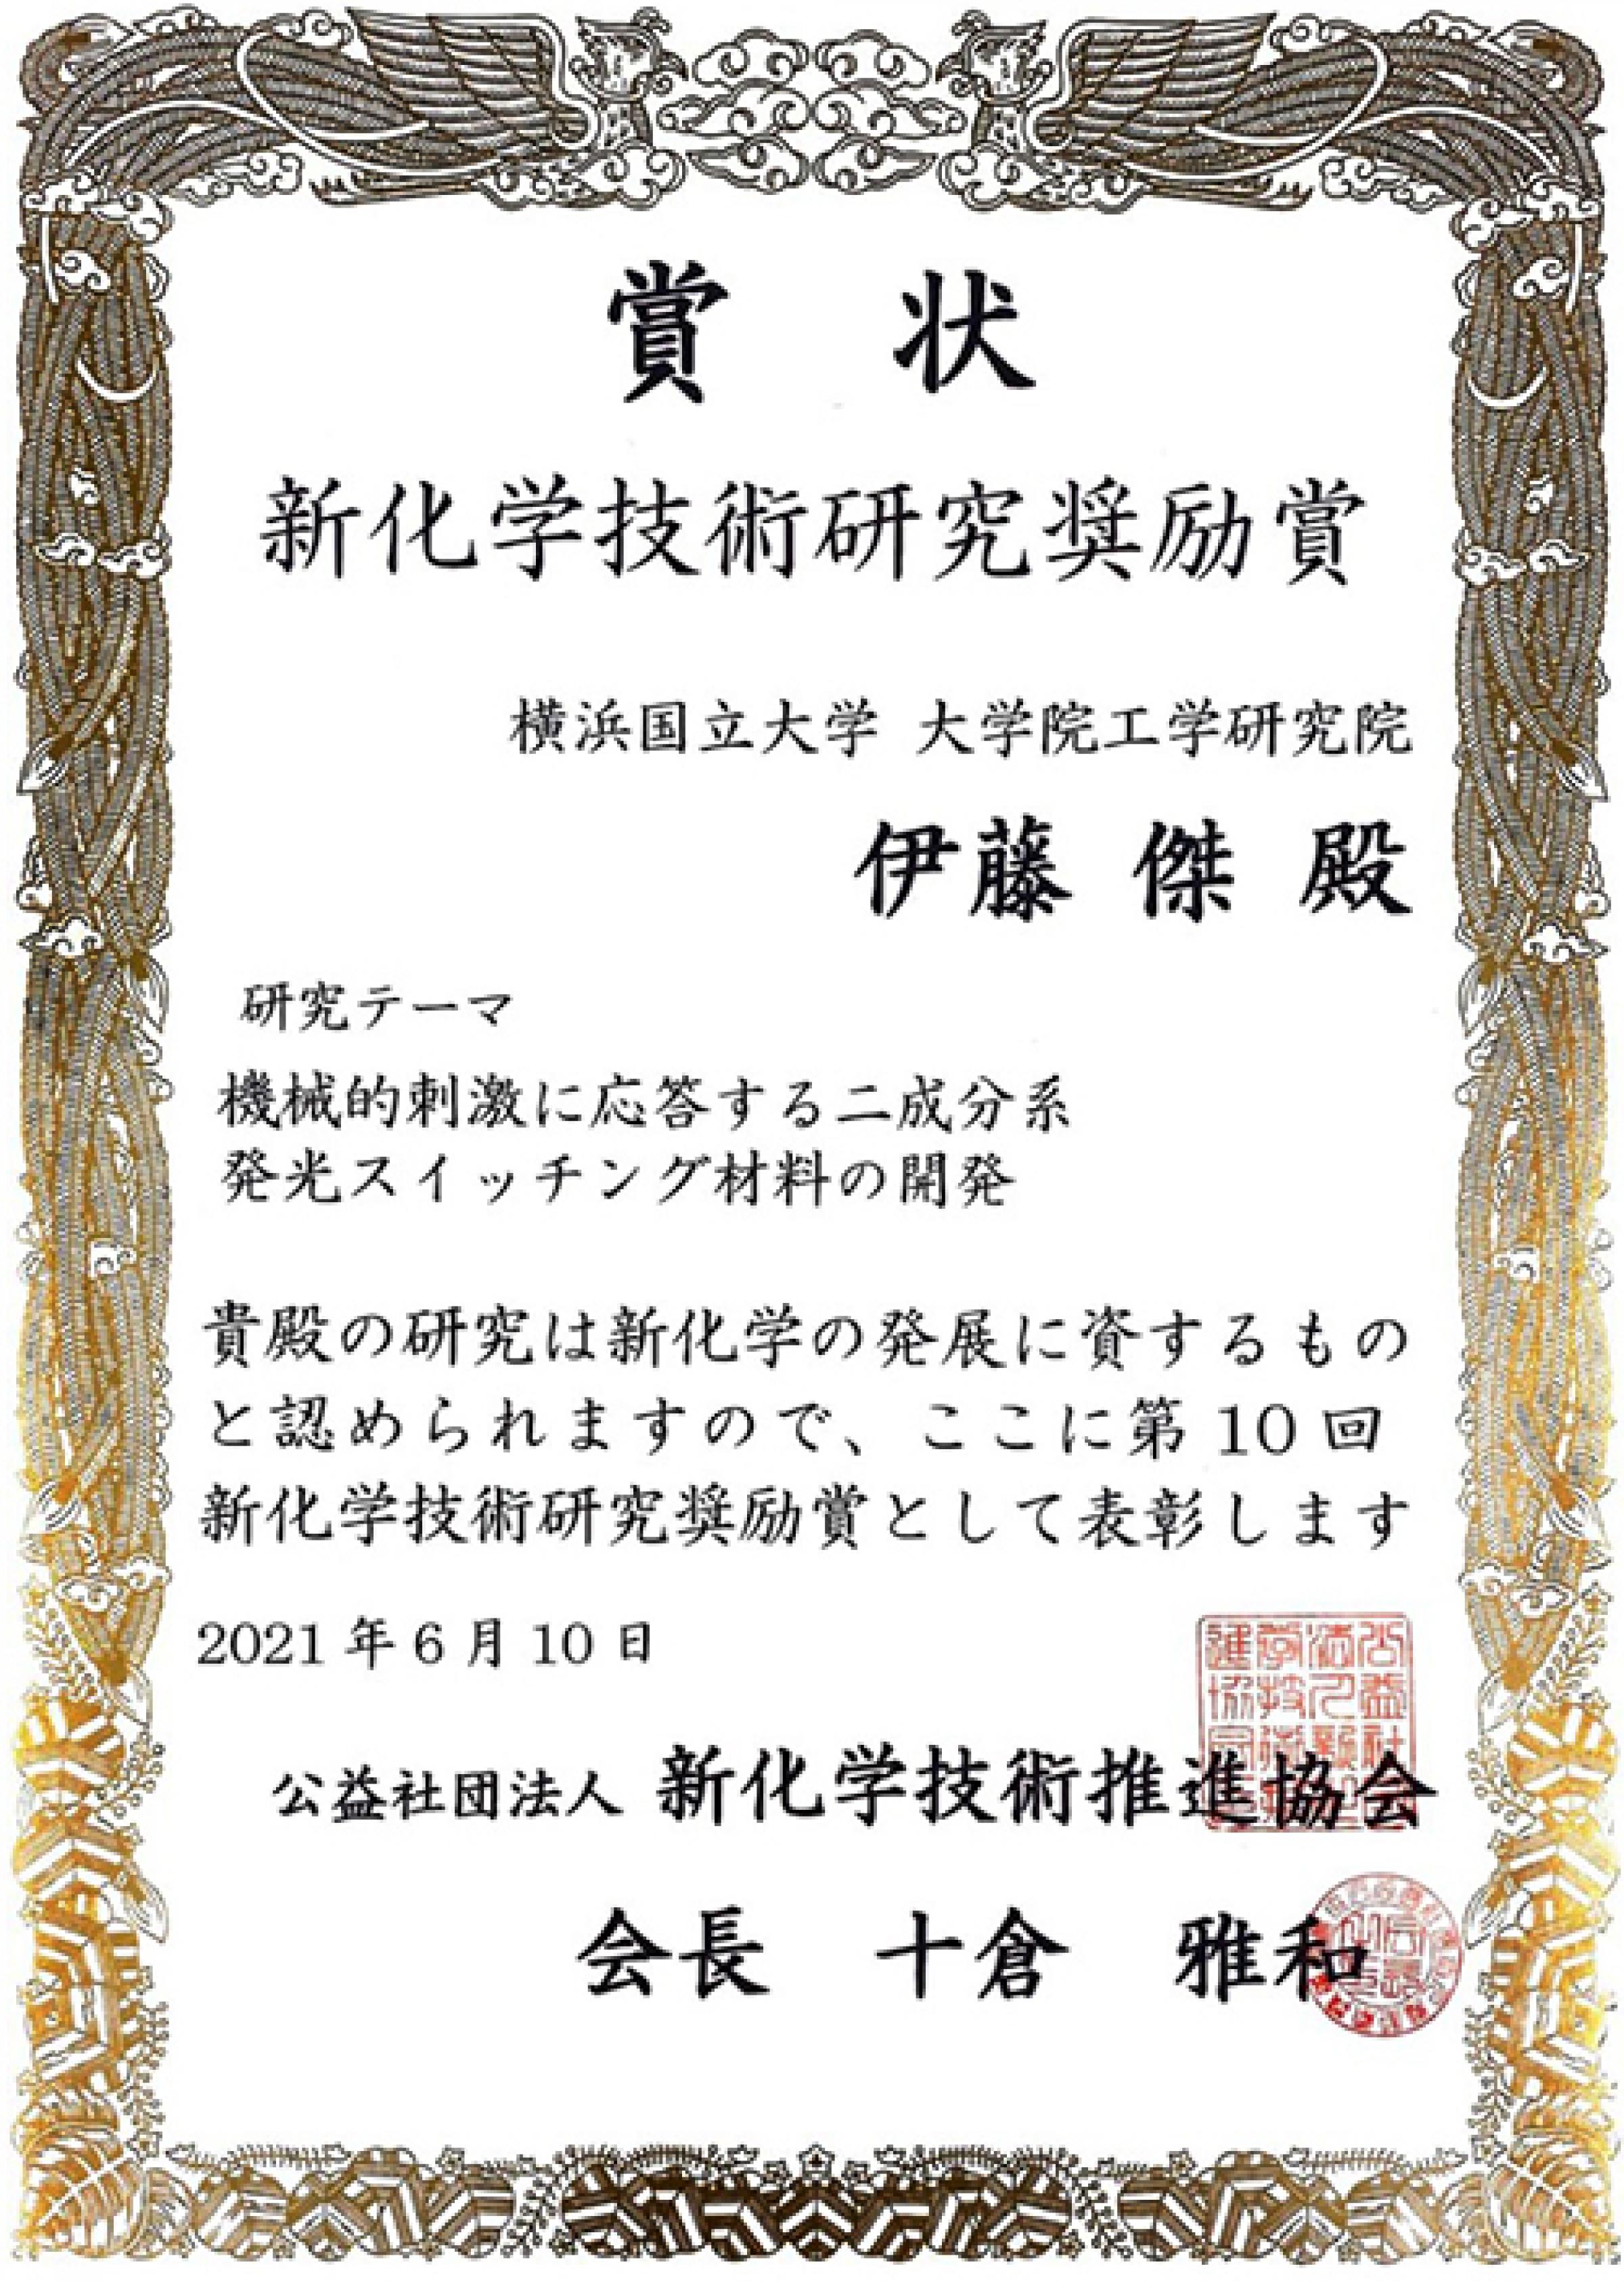 賞 状
新化学技術研究奨励賞
横浜国立大学 大学院工学研究院
伊藤 傑 殿
研究テーマ
機械的刺激に応答する二成分系
発光スイッチング材料の開発
貴殿の研究は新化学の発展に資するもの
と認められますので、ここに第 10 回
新化学技術研究奨励賞として表彰します
2021 年 6 月 10 日
公益社団法人 新化学技術推進協会
会長 十倉 雅和